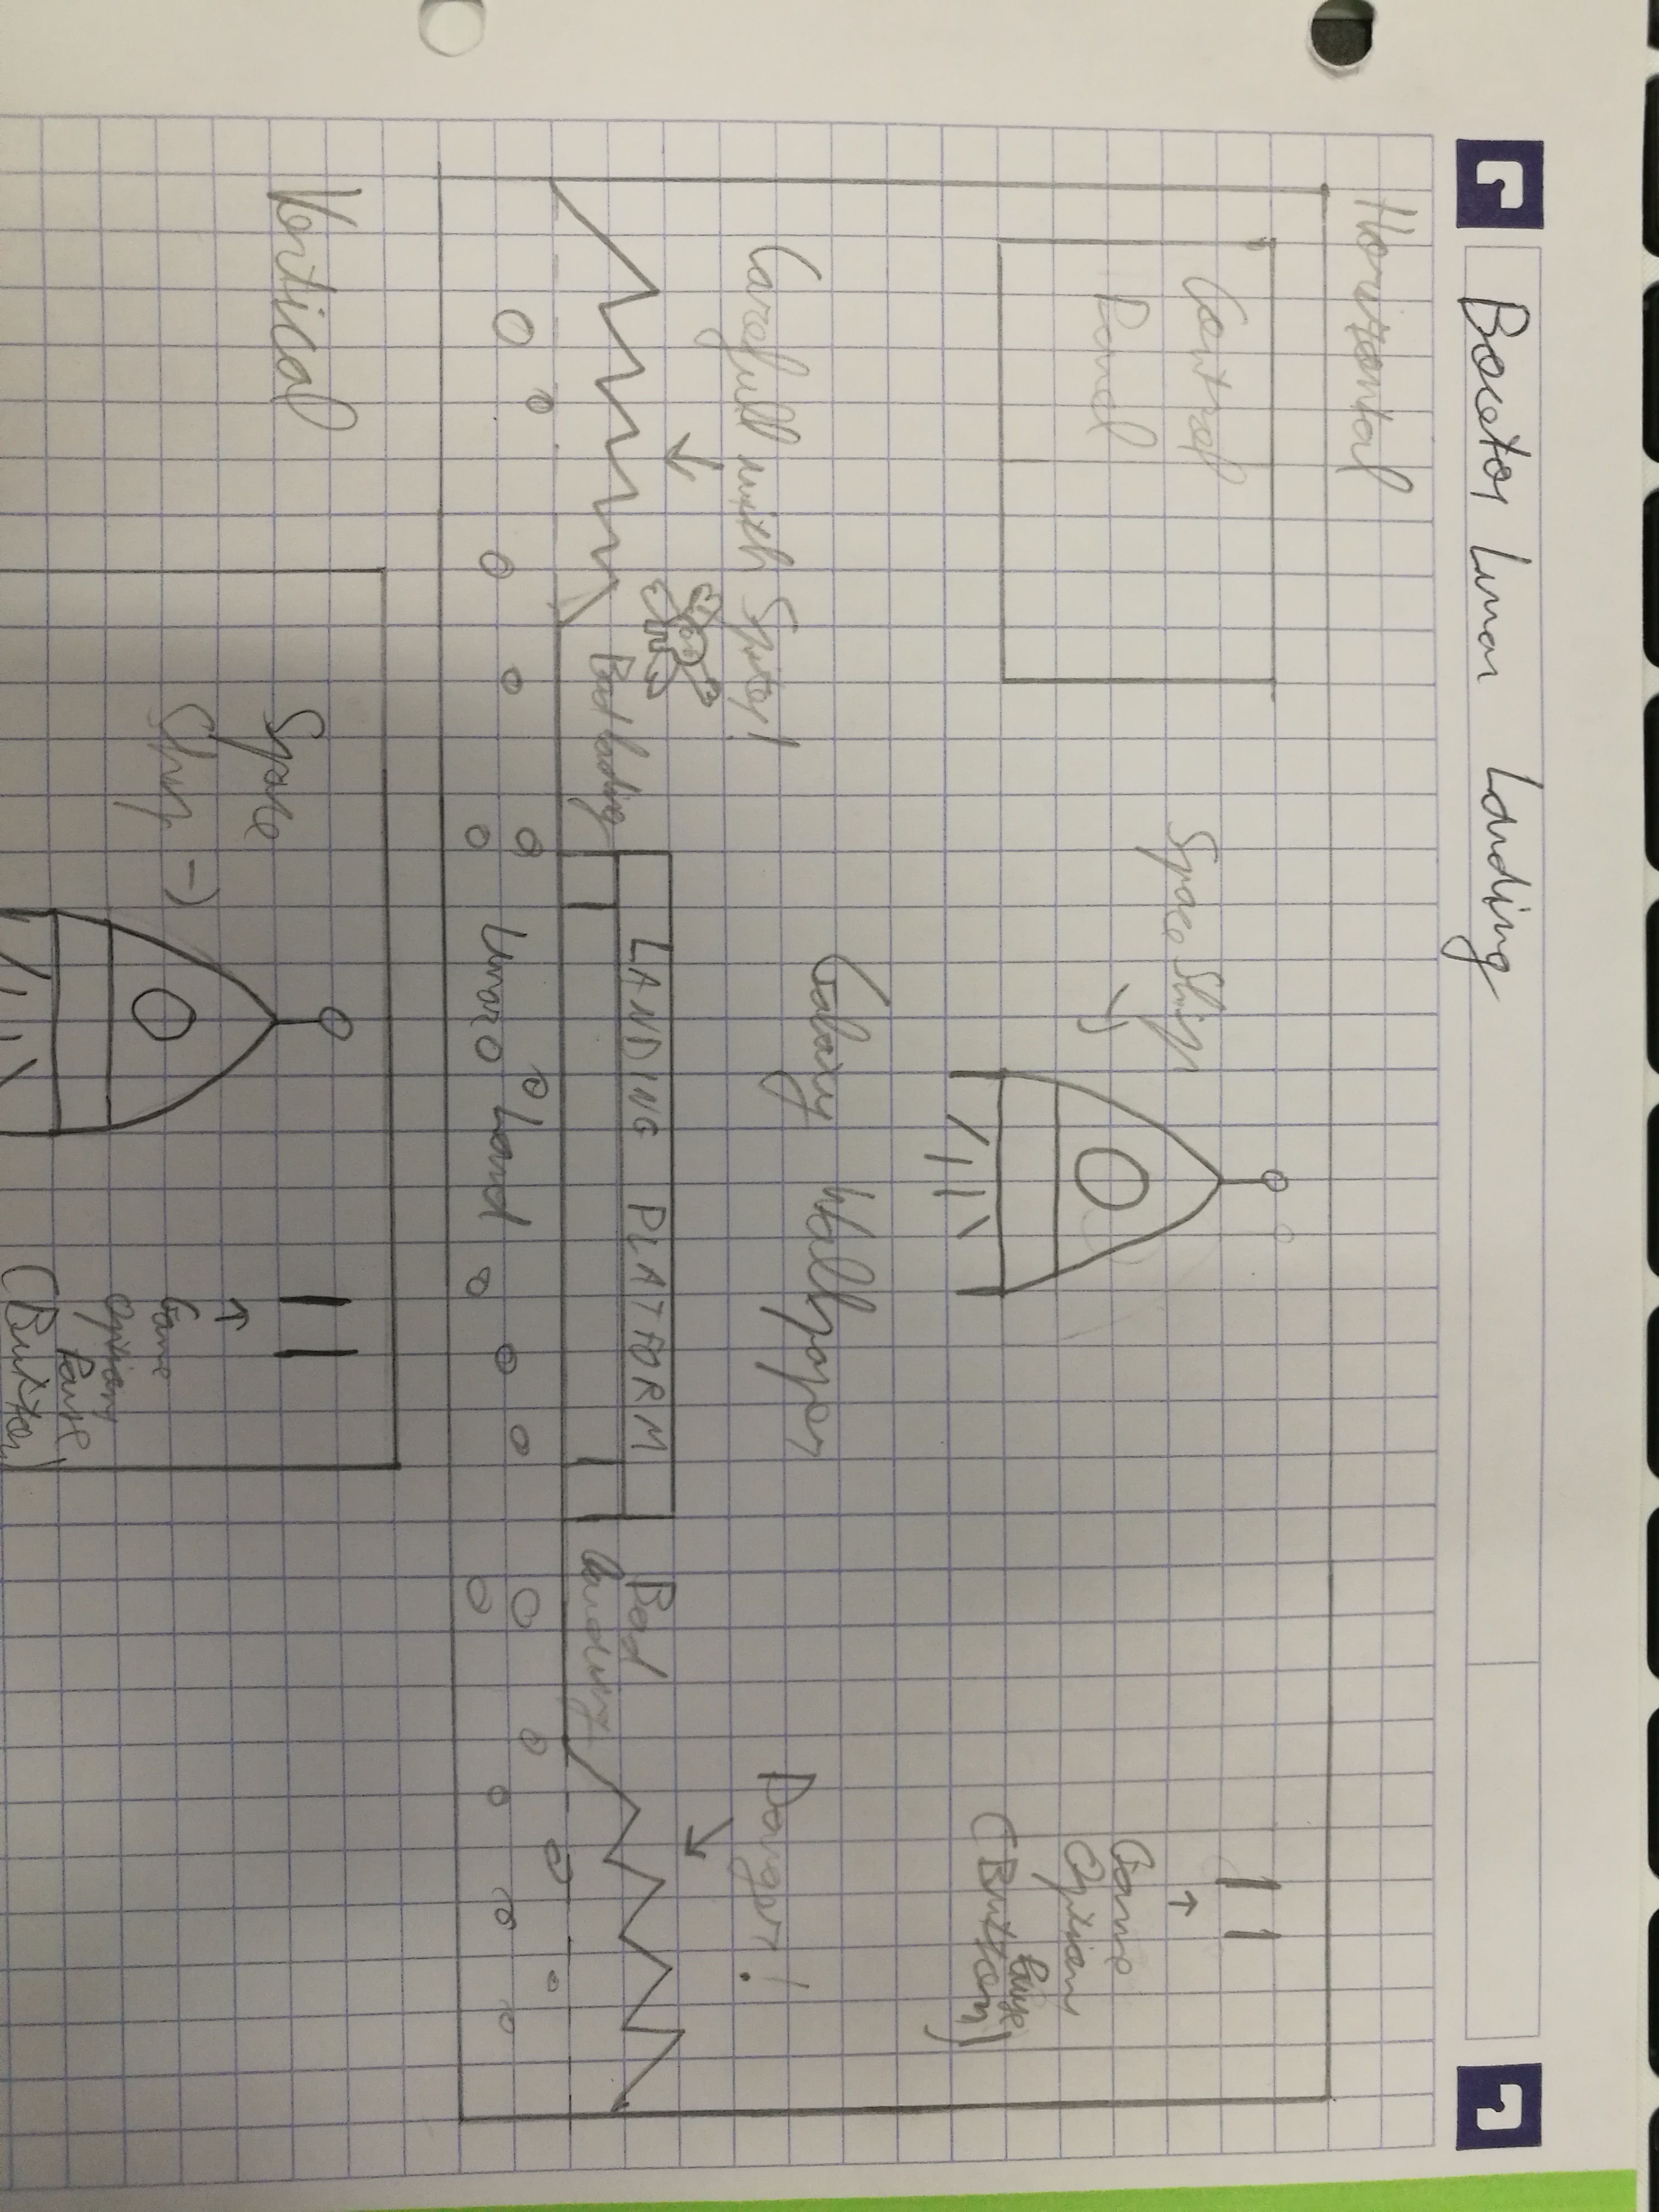 Bocetos Lunar Landing
Horizontal
Control
Panel
Space Ship
Game
Options
Pause
(Button)
Galaxy Wallpaper
Carefull with Spites!
Danger!
Bad lading
LANDING PLATFORM
Bad
Landing
Lunar Land
Vertical
Space
Ship
Game
Options
Pause
(Button